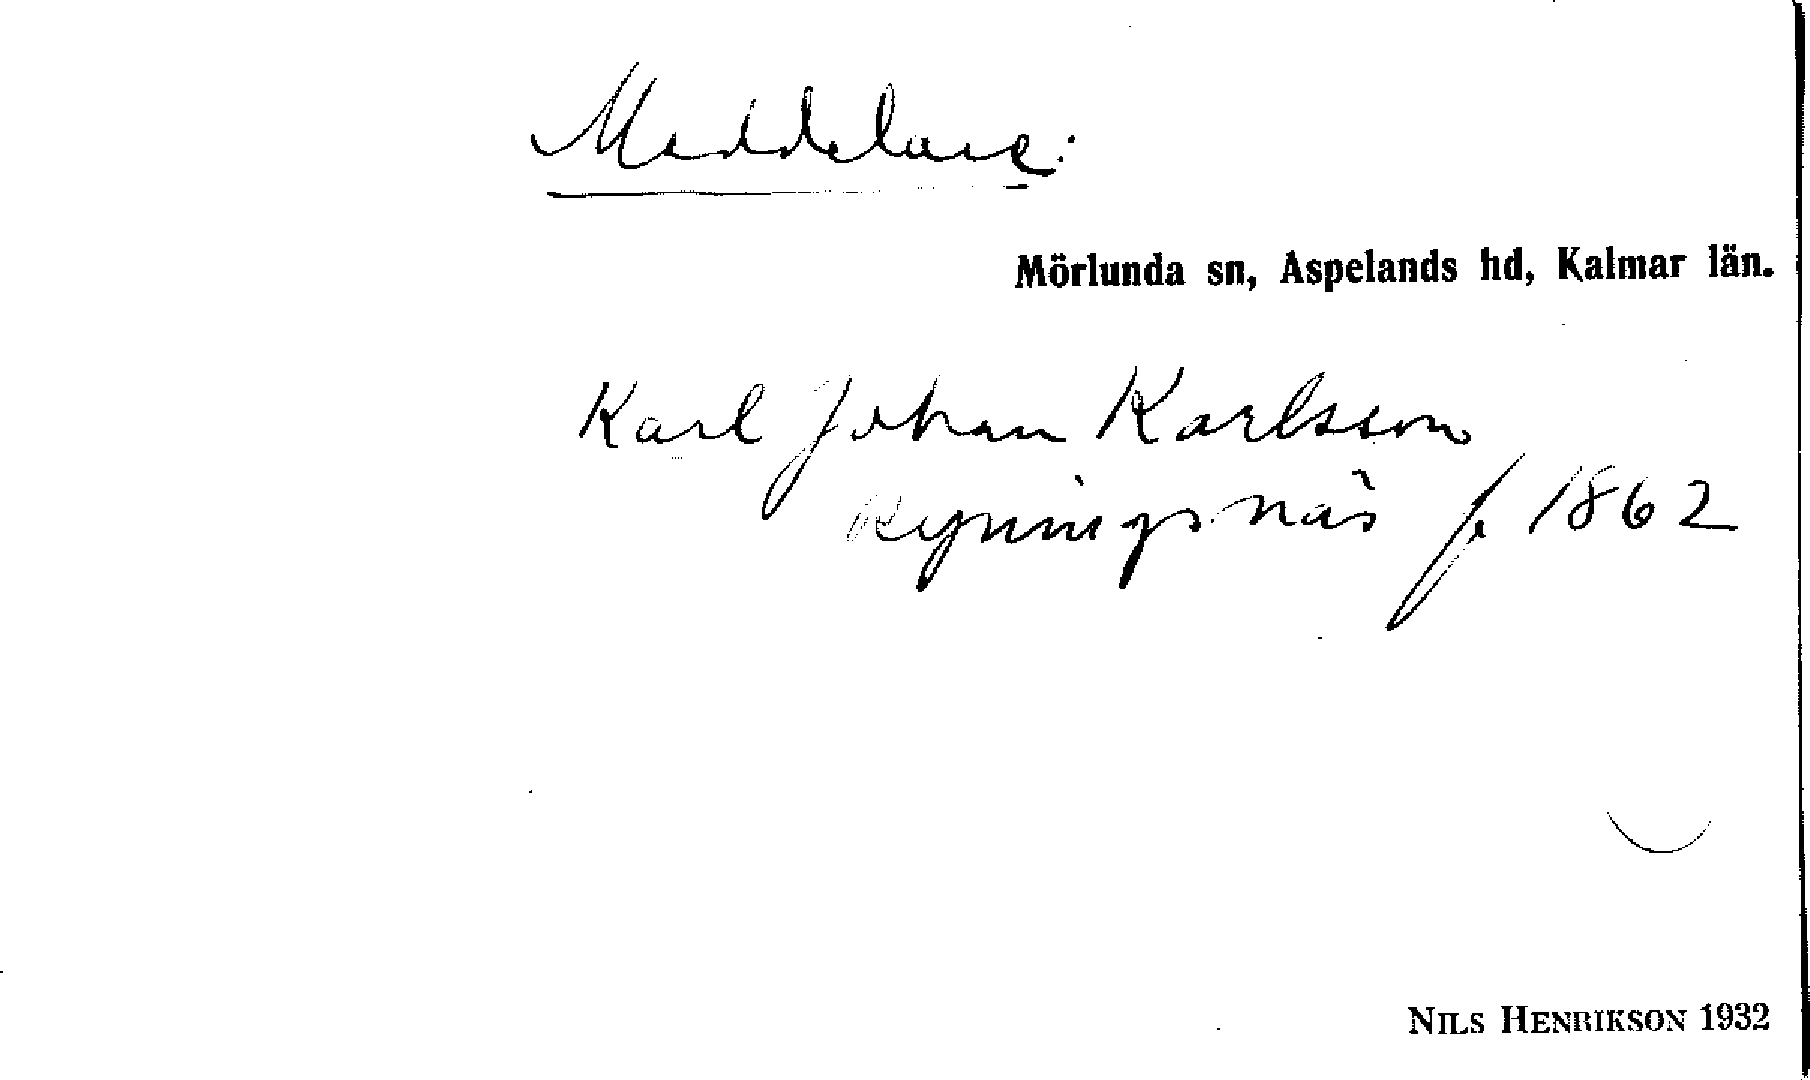 Meddelare:
Mörlunda sn, Aspelands hd, Kalmar län.
Karl Johan Karlsson
Ryningsnäs f. 1862
NILS HENRIKSON 1932